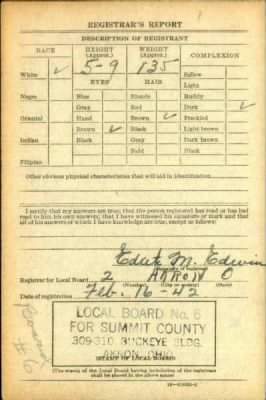 REGISTRAR'S REPORT
DESCRIPTION OF REGISTRANT
RACE HEIGHT (Approx.) WEIGHT (Approx.) COMPLEXION
White ✓ 5-9 135 Sallow
EYES HAIR Light
Negro Blue Blonde Ruddy
Gray Red Dark ✓
Oriental Hazel Brown ✓ Freckled
Brown ✓ Black Light brown
Indian Black Gray Dark brown
Bald Black
Filipino
Other obvious physical characteristics that will aid in identification
I certify that my answers are true; that the person registered has read or has had
read to him his own answers; that I have witnessed his signature or mark and that all
of his answers of which I have knowledge are true, except as follows:
Edith M. Edwin
(Signature of registrar)
Registrar for Local Board 2 AKRON O
(Number) (City or county) (State)
Date of registration Feb. 16-42
LOCAL BOARD No. 6
FOR SUMMIT COUNTY
309-310 BUCKEYE BLDG.
AKRON, OHIO
(STAMP OF LOCAL BOARD)
(The stamp of the Local Board having jurisdiction of the registrant
shall be placed in the above space.)
Board
#6